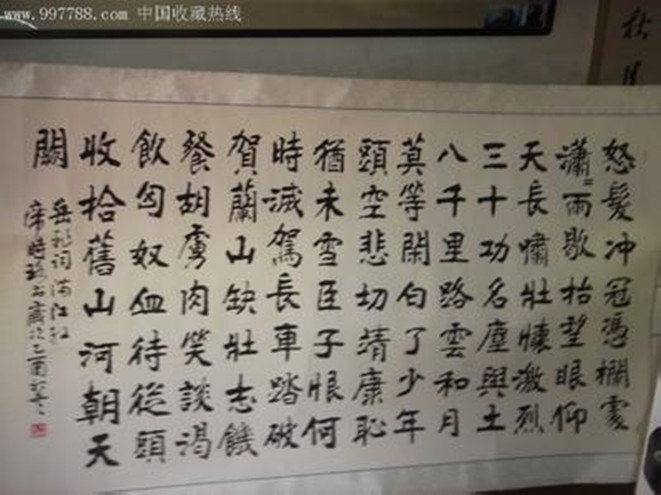 www.997788.com 中国收藏热线
怒髮冲冠憑欄處
瀟〻雨歇抬望眼仰
天長嘯壯懷激烈
三十功名塵與土
八千里路雲和月
莫等閑白了少年
頭空悲切靖康恥
猶未雪臣子恨何
時滅駕長車踏破
賀蘭山缺壯志饑
餐胡虜肉笑談渴
飲匈奴血待從頭
收拾舊山河朝天
闕
岳飛词满江红
乙酉
秋